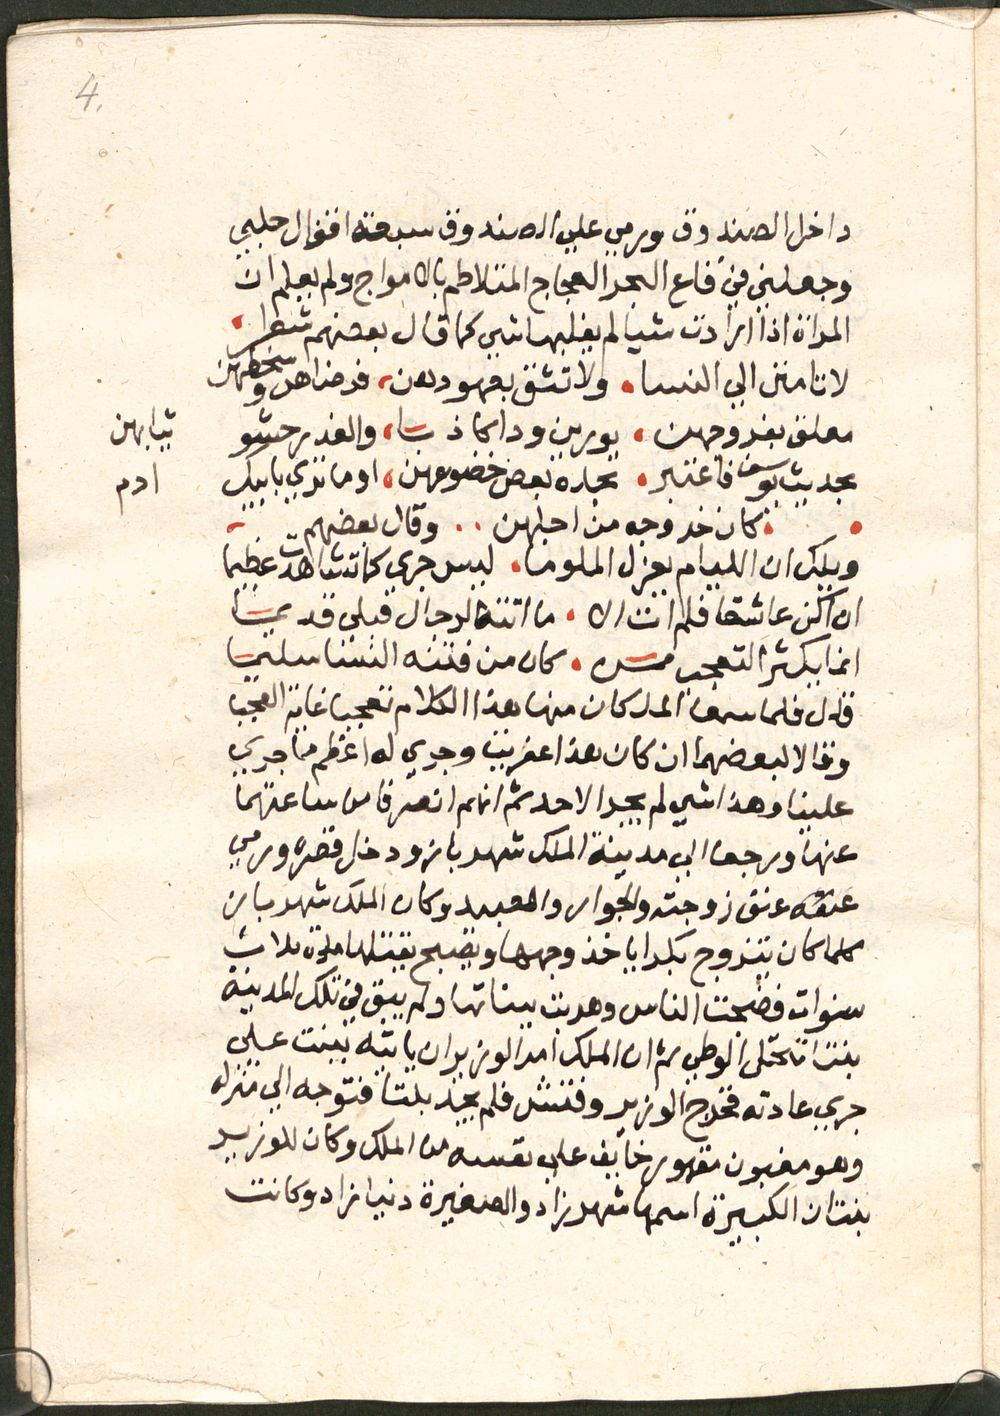 4.
داخل الصندوق ورمي علي الصندوق سبعة اقفال حلبي
وجعلني في قاع البحر العجاج المتلاطم بالامواج ولم يعلم ان
المراة اذا ارادت شيا لم يغلبها شي كما قال بعضهم شعرا
لا تامنن الي النسا ولا تثق بعهودهن فرضاهن وسخطهن
معلق بفروجهن يورين ودا كاذبا والغدر حشو
ثيابهن
بحديث يوسف فاعتبر تجده بعض خضوعهن اوما تري بابيك
ادم
كان خروجه من اجلهن وقال بعضهم
ويلك ان الليام يعزل الملوما ليس جري كما شاهدت عظيما
ان اكن عاشقا فلم ات الا ما اتته الرجال قبلي قديما
انما يكثر التعجب من كان من فتنه النسا سليما
قال فلما سمعا الملكان منها هذا الكلام تعجبا غاية العجب
وقالا لبعضهما ان كان هذا عفريت وجري له اعظم مما جري
علينا وهذا شي لم يجرا لاحد ثم انهم انصرفا من ساعتهما
عنها ورجعا الي مدينة الملك شهرباز ودخل قصره ورمي
عنقه عنق زوجته والجوار والعبيد وكان الملك شهرباز
كلما كان يتزوج بكرا ياخذ وجهها ويصبح يقتلها مدة ثلاث
سنوات فضجت الناس وهربت ببناتها ولم يبق في تلك المدينة
بنتا تحتمل الوطي ثم ان الملك امر الوزير ان ياتيه ببنت علي
جري عادته فخرج الوزير وفتش فلم يجد بنتا فتوجه الي منزله
وهو مغبون مقهور خايف علي نفسه من الملك وكان للوزير
بنتان الكبيرة اسمها شهرزاد والصغيرة دنيازاد وكانت